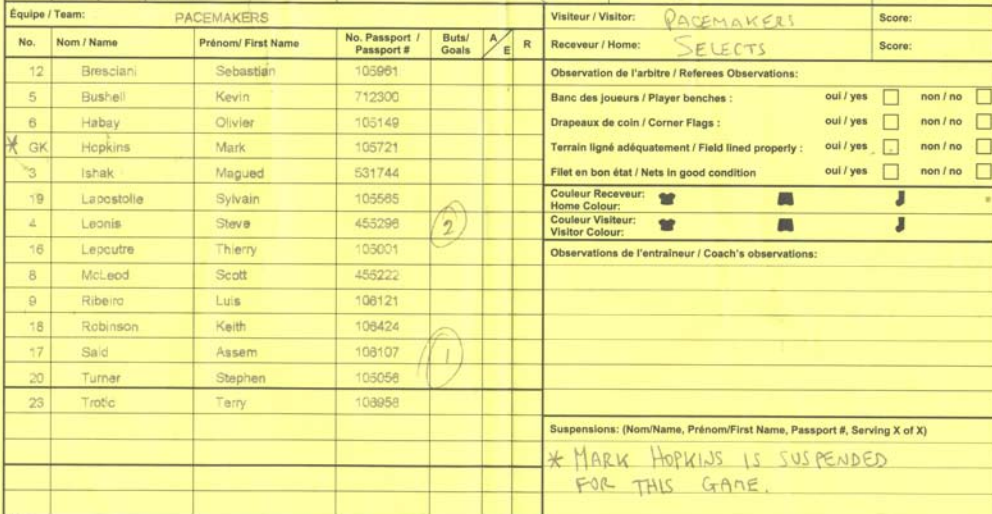 Équipe / Team: PACEMAKERS
No. Nom / Name Prénom/ First Name No. Passport / Passport # Buts/ Goals A/E R
12 Bresciani Sebastian 105961
5 Bushell Kevin 712300
6 Habay Olivier 105149
* GK Hopkins Mark 105721
3 Ishak Magued 531744
19 Lapostolle Sylvain 105565
4 Leonis Steve 455296 2
16 Lepoutre Thierry 105001
8 McLeod Scott 455222
9 Ribeiro Luis 106121
18 Robinson Keith 106424
17 Said Assem 106107 1
20 Turner Stephen 105056
23 Trotic Terry 106958
Visiteur / Visitor: PACEMAKERS Score:
Receveur / Home: SELECTS Score:
Observation de l'arbitre / Referees Observations:
Banc des joueurs / Player benches : oui / yes non / no
Drapeaux de coin / Corner Flags : oui / yes non / no
Terrain ligné adéquatement / Field lined properly : oui / yes non / no
Filet en bon état / Nets in good condition oui / yes non / no
Couleur Receveur:
Home Colour:
Couleur Visiteur:
Visitor Colour:
Observations de l'entraîneur / Coach's observations:
Suspensions: (Nom/Name, Prénom/First Name, Passport #, Serving X of X)
* MARK HOPKINS IS SUSPENDED
FOR THIS GAME.